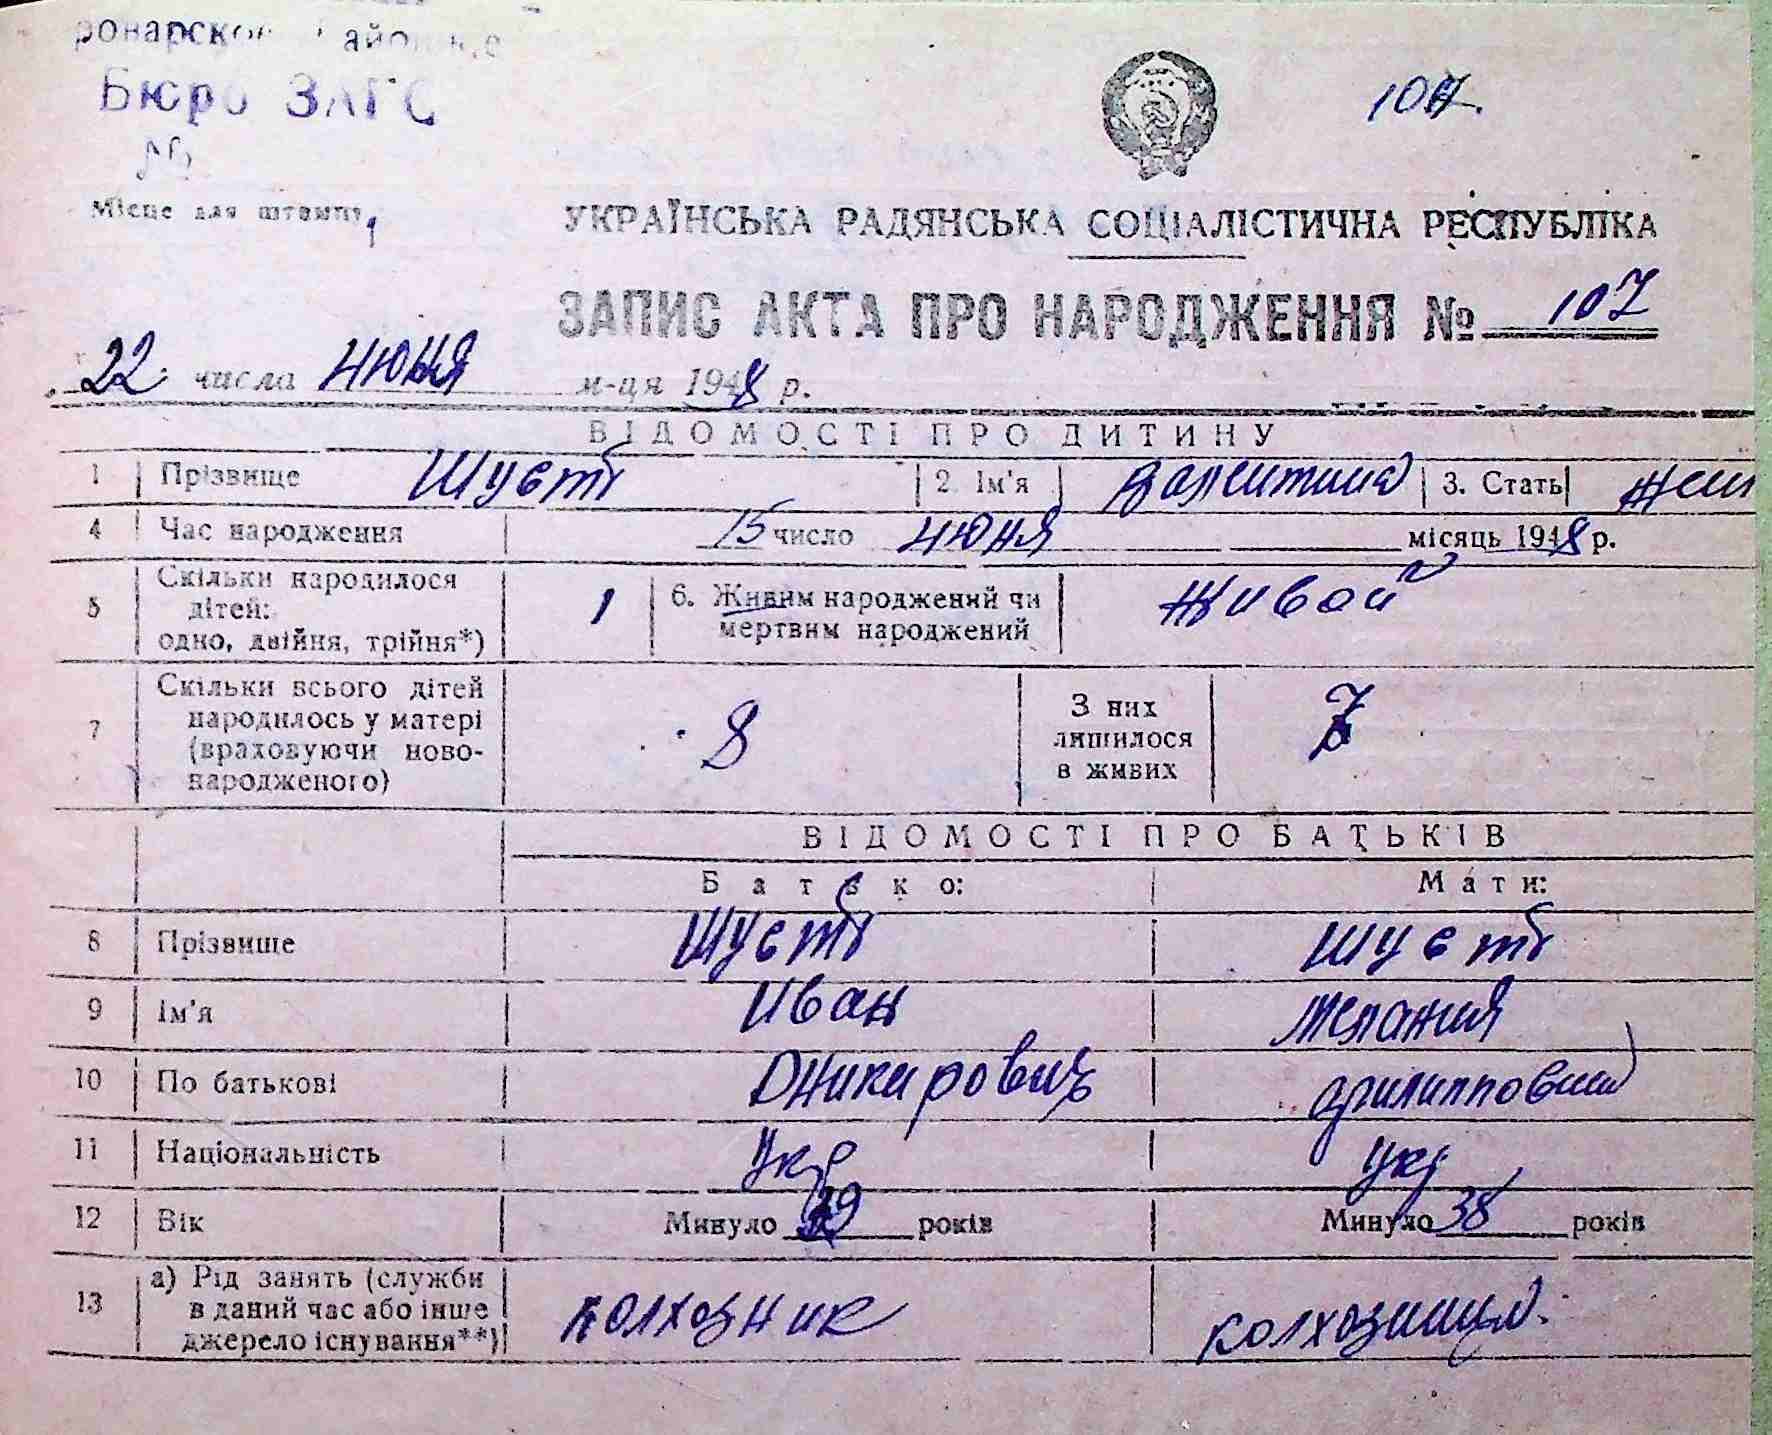 Бюро ЗАГС
№
107.
Місце для штампу
УКРАЇНСЬКА РАДЯНСЬКА СОЦІАЛІСТИЧНА РЕСПУБЛІКА
ЗАПИС АКТА ПРО НАРОДЖЕННЯ № 107
22 числа июня м-ця 1948 р.
ВІДОМОСТІ ПРО ДИТИНУ
1 Прізвище Шуєть 2. Ім'я Валентина 3. Стать жен
4 Час народження 15 число июня місяць 1948 р.
5 Скільки народилося дітей: одно, двійня, трійня*) 1 6. Живим народжений чи мертвим народжений живой
7 Скільки всього дітей народилось у матері (враховуючи новонародженого) 8 З них лишилося в живих 7
ВІДОМОСТІ ПРО БАТЬКІВ
Батько: Мати:
8 Прізвище Шуєть Шуєть
9 Ім'я Иван Мелания
10 По батькові Оникирович Филипповна
11 Національність Укр Укр
12 Вік Минуло 39 років Минуло 38 років
13 а) Рід занять (служби в даний час або інше джерело існування**) колхозник колхозница.